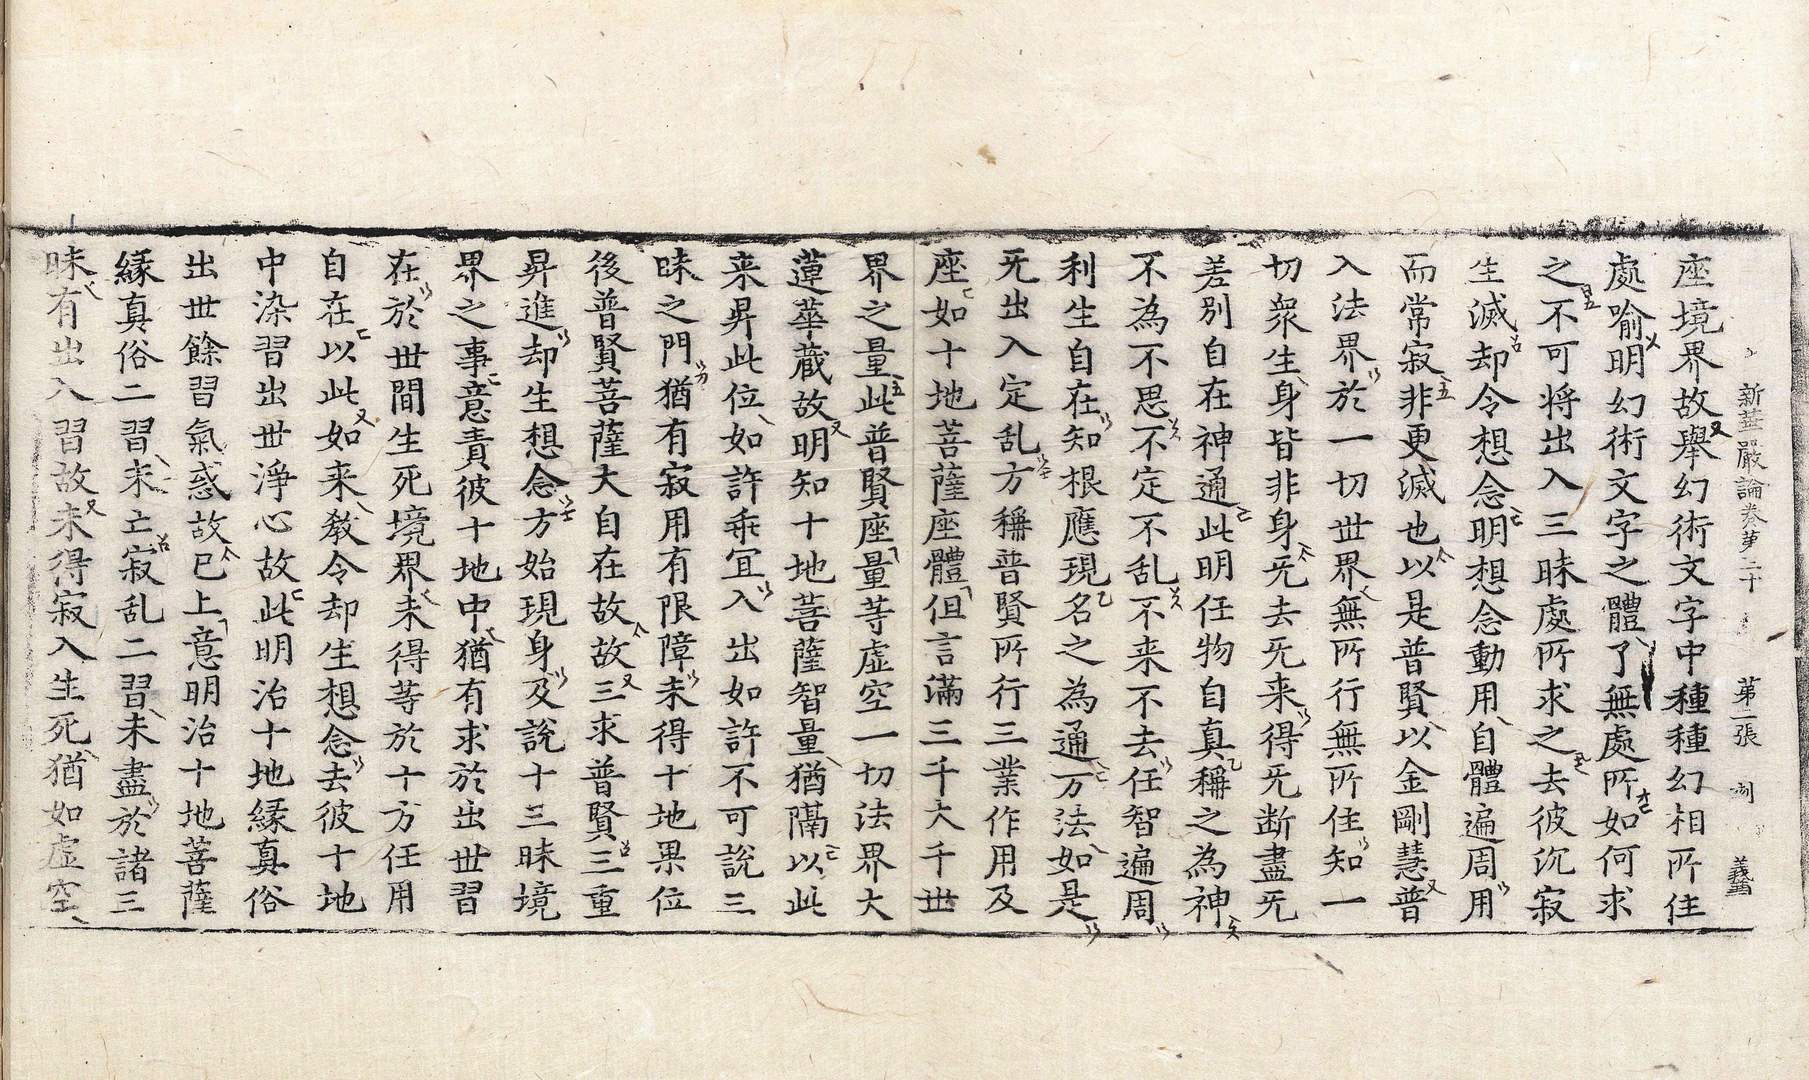 新華嚴論卷第二十 第二張
座境界故舉幻術文字中種種幻相所住
處喻明幻術文字之體了無處所如何求
之不可將出入三昧處所求之去彼沉寂
生滅却令想念明想念動用自體遍周用
而常寂非更滅也以是普賢以金剛慧普
入法界於一切世界無所行無所住知一
切衆生身皆非身无去无来得无断盡无
差別自在神通此明任物自真稱之為神
不為不思不定不乱不来不去任智遍周
利生自在知根應現名之為通万法如是
无出入定乱方稱普賢所行三業作用及
座如十地菩薩座體但言滿三千大千世
界之量此普賢座量等虛空一切法界大
蓮華藏故明知十地菩薩智量猶隔以此
来昇此位如許乖宜入出如許不可說三
昧之門猶有寂用有限障未得十地果位
後普賢菩薩大自在故故三求普賢三重
昇進却生想念方始現身及說十三昧境
界之事意責彼十地中猶有求於出世習
在於世間生死境界未得等於十方任用
自在以此如来教令却生想念去彼十地
中染習出世淨心故此明治十地緣真俗
出世餘習氣惑故已上意明治十地菩薩
緣真俗二習未亡寂乱二習未盡於諸三
昧有出入習故未得寂入生死猶如虛空